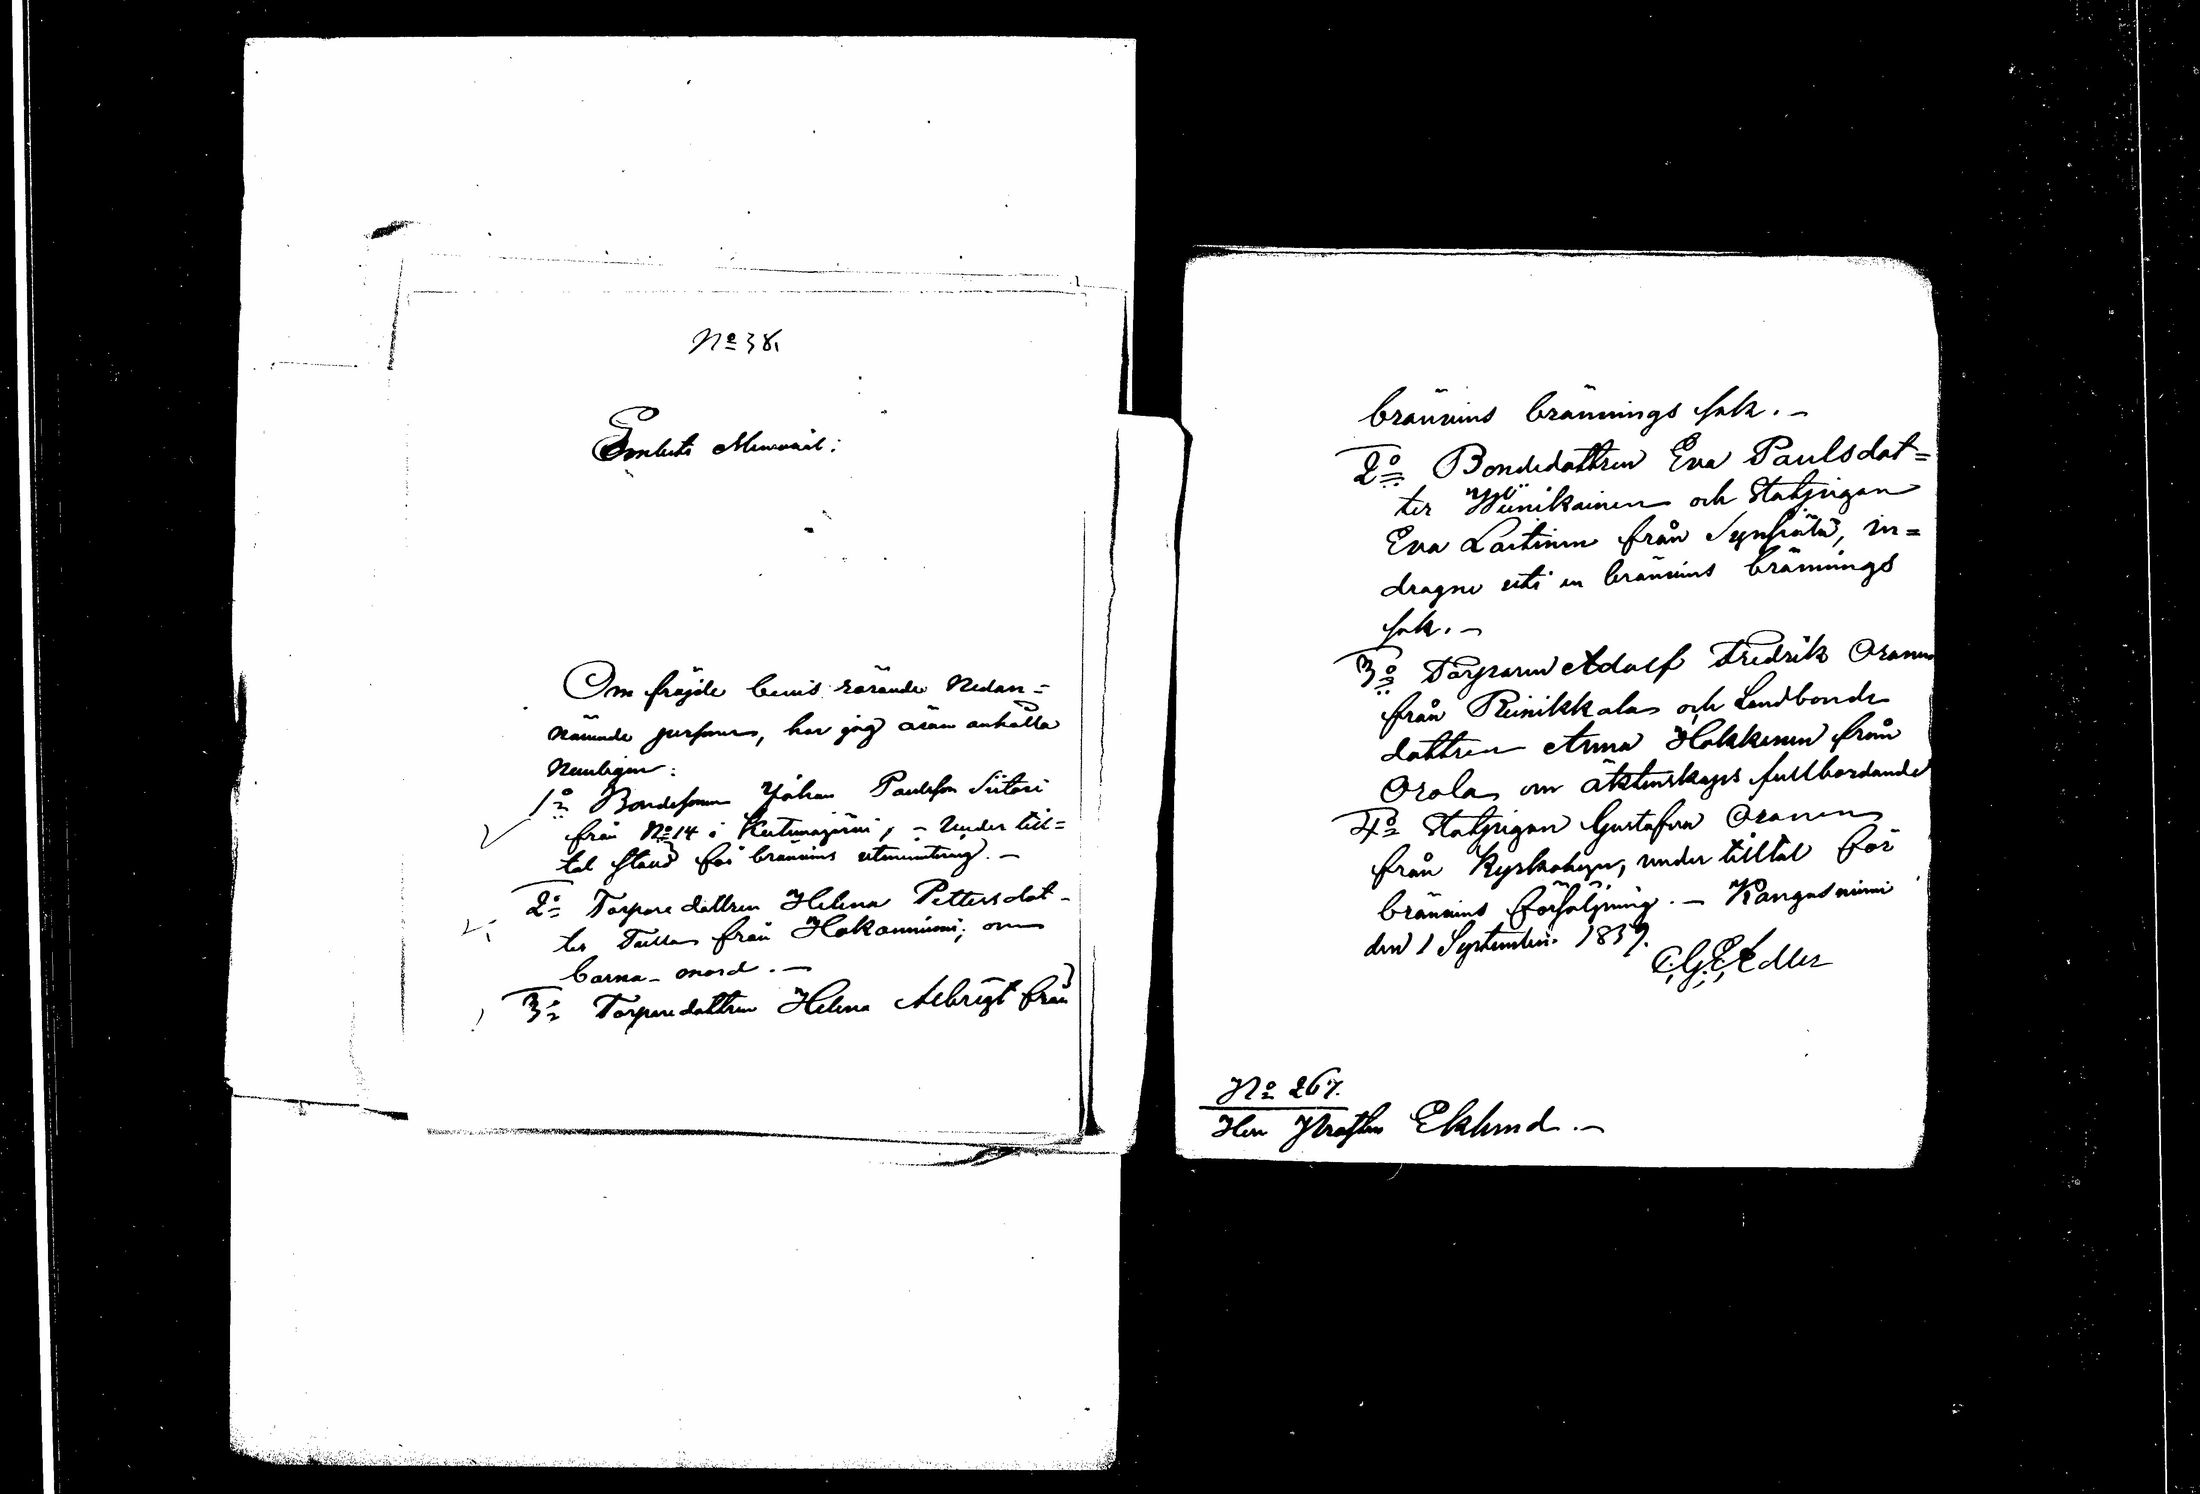 No 38.
Embets Memorial:
Om fräjde bevis rörande Nedan=
nämnde personer, har jag äran anhålla
Nemligen:
1o Bondesonen Johan Paulsson Siitari
från No 14 i Kutemajärvi, - under till=
tal stäld för bränvins utminutering. -
2o Torpare dottren Helena Pettersdot-
ter Tulla från Hokanniemi; om
barna-mord. -
3o Torparedottren Helena Albrigt från
bränvins brännings sak. -
2o Bondedottren Eva Paulsdot=
ter Weinikainen och Statpigan
Eva Laitinen från Synsiälä, in=
dragne uti en bränvins brännings
sak. -
3o Torparen Adolf Fredrik Oranen
från Reinikkala och Landbonde
dottren Anna Hokkanen från
Orola om äktenskaps fullbordande
4o Statpigan Gustafva Oranen
från Kyrkobyn, under tilltal för
bränvins försäljning. - Kangasniemi
den 1 September 1837.
C. G. E. Edler
No 267.
Herr Prosten Eklund. -